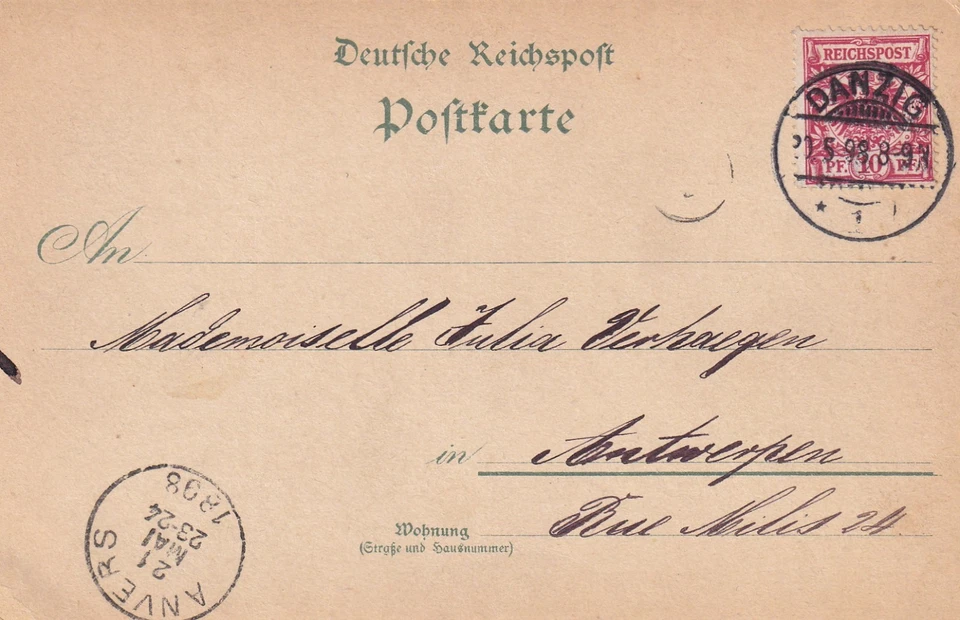 Deutsche Reichspost
Postkarte
REICHSPOST
PF. 10 PF.
DANZIG
5.98.8-9N
* 1
An
Mademoiselle Julia Verhaegen
in Antwerpen
Rue Milis 24
Wohnung
(Straße und Hausnummer)
ANVERS
21
MAI
23-24
1898